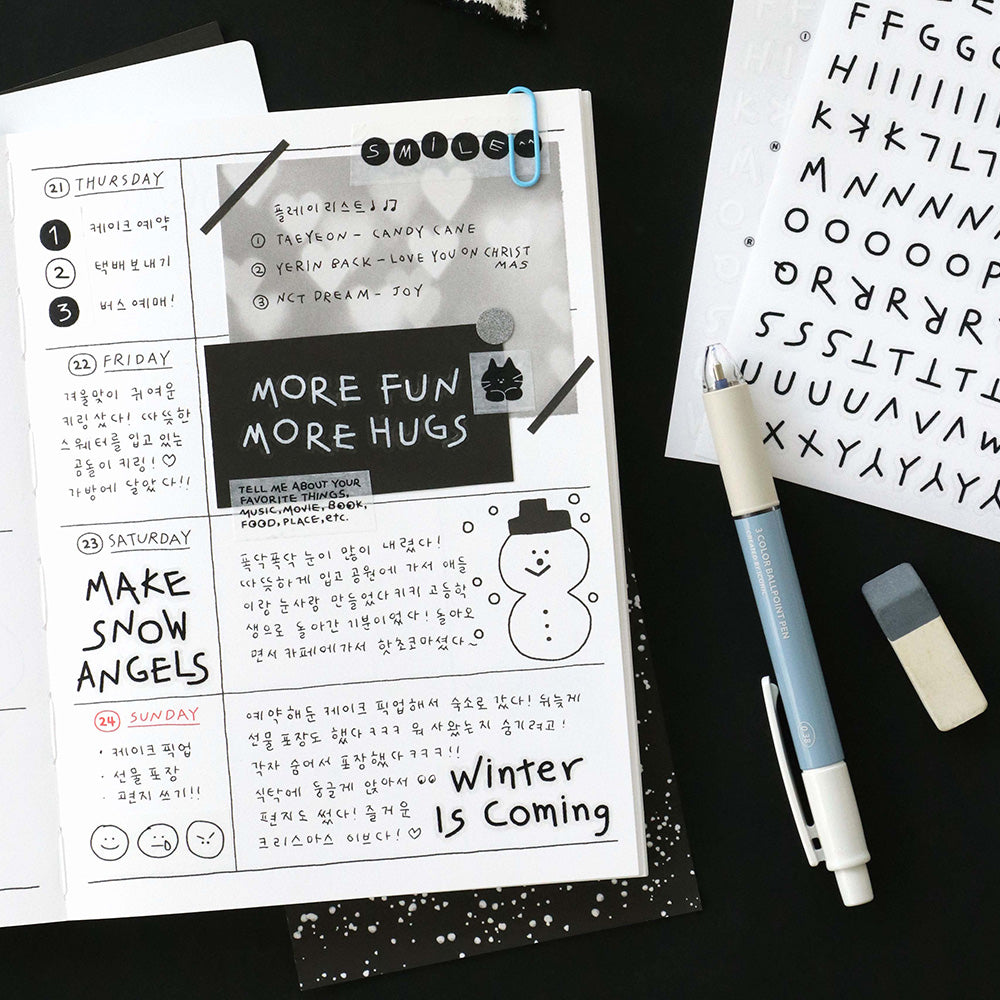 SMILE^^
21 THURSDAY
1 케이크 예약
2 택배 보내기
3 버스 예매!
플레이리스트♩♫
① TAEYEON - CANDY CANE
② YERIN BACK - LOVE YOU ON CHRIST
MAS
③ NCT DREAM - JOY
22 FRIDAY
겨울맞이 귀여운
키링 샀다! 따뜻한
스웨터를 입고 있는
곰돌이 키링!♡
가방에 달았다!!
MORE FUN
MORE HUGS
TELL ME ABOUT YOUR
FAVORITE THINGS,
MUSIC, MOVIE, BOOK,
FOOD, PLACE, etc.
23 SATURDAY
MAKE
SNOW
ANGELS
폭닥폭닥 눈이 많이 내렸다!
따뜻하게 입고 공원에 가서 애들
이랑 눈사람 만들었다키키 고등학
생으로 돌아간 기분이었다! 돌아오
면서 카페에가서 핫초코마셨다~
24 SUNDAY
· 케이크 픽업
· 선물 포장
· 편지 쓰기!!
예약해둔 케이크 픽업해서 숙소로 갔다! 뒤늦게
선물 포장도 했다ㅋㅋㅋ 뭐 사왔는지 숨기려고!
각자 숨어서 포장했다ㅋㅋㅋ!!
식탁에 둥글게 앉아서
편지도 썼다! 즐거운
크리스마스 이브다!♡
Winter
Is Coming
3 COLOR BALLPOINT PEN
CREATED BY ICONIC
0.38
FFGGG
HIIIIIII
KKKLLL
MNNNN
OOOOOP
QRRRRR
SSSSTTTT
UUUUVVVW
XXYYYYY